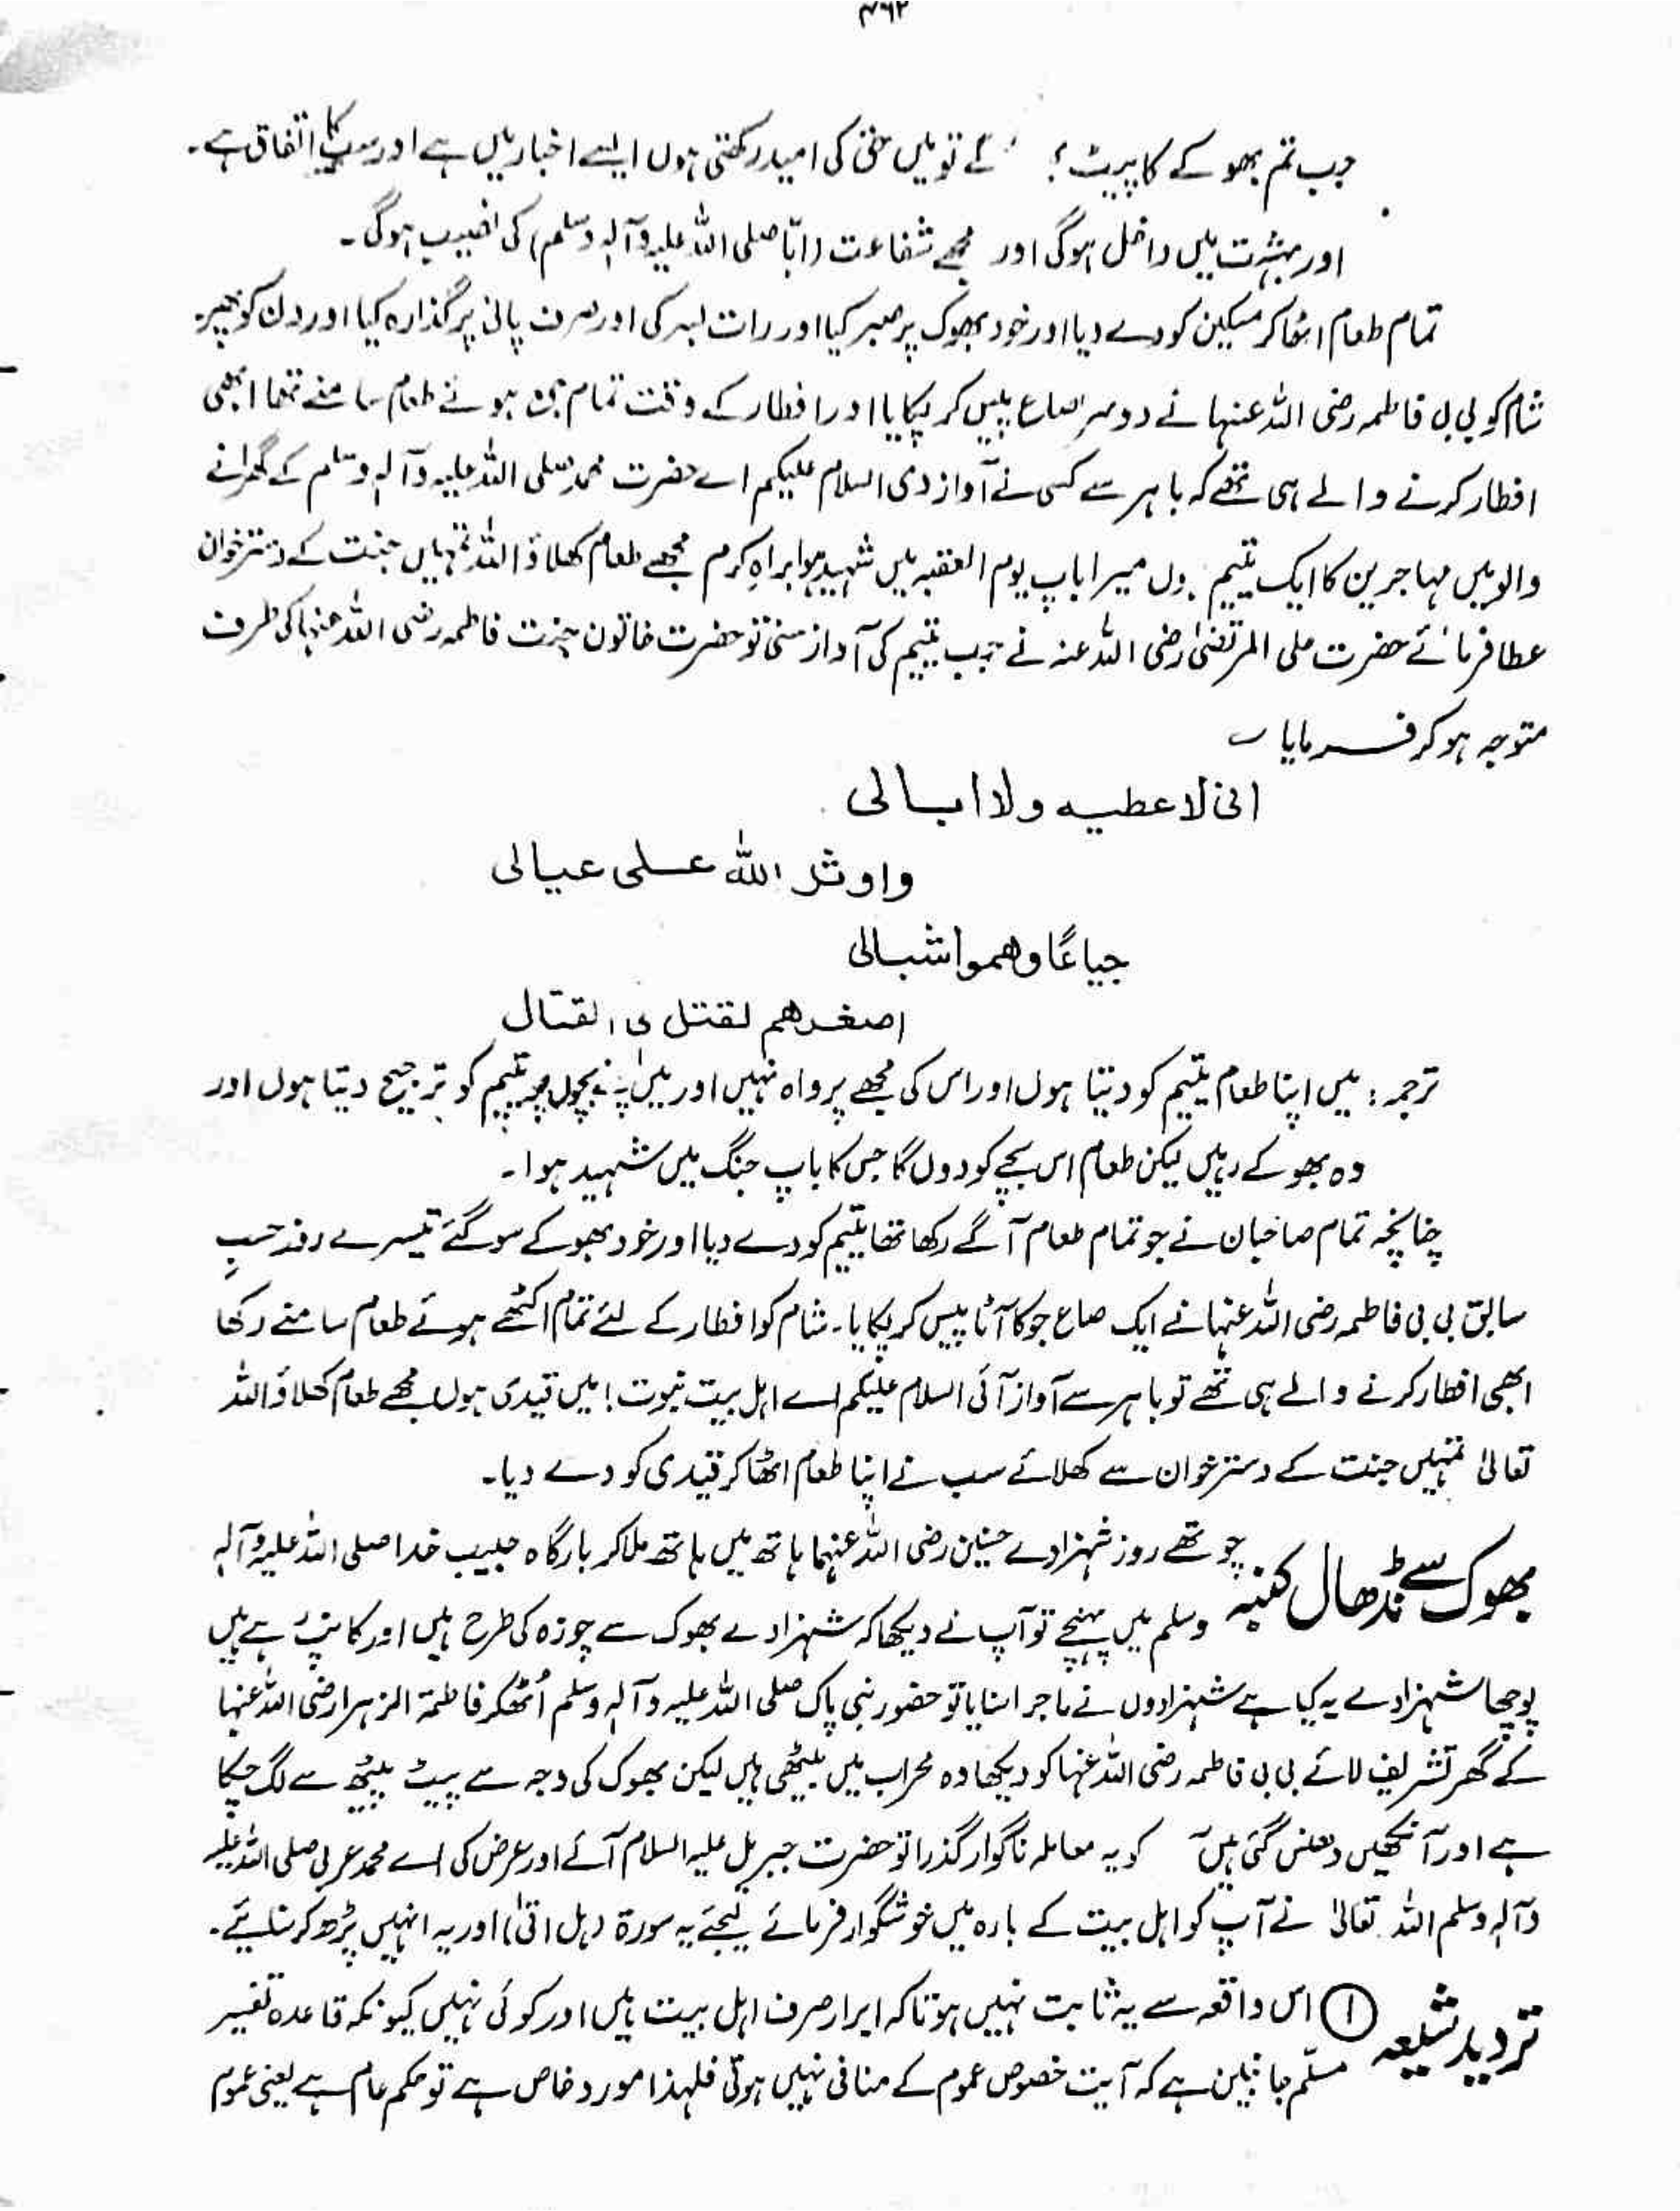 ۴۶۲
جب تم بھوکے کا پیٹ گے تو میں حق کی امید رکھتی ہوں ایسے اخبار میں ہے اور سب کا اتفاق ہے۔
اور بہشت میں داخل ہوگی اور مجھے شفاعت (ابّا صلی اللہ علیہ وآلہ وسلم) کی نصیب ہوگی۔
تمام طعام اٹھا کر مسکین کو دے دیا اور خود بھوک پر صبر کیا اور رات بسر کی اور صرف پانی پر گذارہ کیا اور دن کو پھر
شام کو بی بی فاطمہ رضی اللہ عنہا نے دوسرا صاع پیس کر پکایا اور افطار کے وقت تمام جمع ہوئے طعام سامنے تھا ابھی
افطار کرنے والے ہی تھے کہ باہر سے کسی نے آواز دی السلام علیکم اے حضرت محمد صلی اللہ علیہ وآلہ وسلم کے گھرانے
والو میں مہاجرین کا ایک یتیم ہوں میرا باپ یوم العقبہ میں شہید ہوا براہِ کرم مجھے طعام کھلاؤ اللہ تمہیں جنت کے دسترخوان
عطا فرمائے حضرت علی المرتضیٰ رضی اللہ عنہ نے جب یتیم کی آواز سنی تو حضرت خاتون جنت فاطمہ رضی اللہ عنہا کی طرف
متوجہ ہو کر فرمایا ؎
انی لاعطیہ ولا ابالی
واوثر اللہ علی عیالی
جیاعًا وھمو اشبالی
اصغرھم لقتل فی القتال
ترجمہ: میں اپنا طعام یتیم کو دیتا ہوں اور اس کی مجھے پرواہ نہیں اور میں اپنے بچوں پر یتیم کو ترجیح دیتا ہوں اور
وہ بھوکے رہیں لیکن طعام اس بچے کو دوں گا جس کا باپ جنگ میں شہید ہوا۔
چنانچہ تمام صاحبان نے جو تمام طعام آگے رکھا تھا یتیم کو دے دیا اور خود بھوکے سو گئے تیسرے روز حسبِ
سابق بی بی فاطمہ رضی اللہ عنہا نے ایک صاع جو کا آٹا پیس کر پکایا۔ شام کو افطار کے لئے تمام اکٹھے ہوئے طعام سامنے رکھا
ابھی افطار کرنے والے ہی تھے تو باہر سے آواز آئی السلام علیکم اے اہل بیت نبوت! میں قیدی ہوں مجھے طعام کھلاؤ اللہ
تعالیٰ تمہیں جنت کے دسترخوان سے کھلائے سب نے اپنا طعام اٹھا کر قیدی کو دے دیا۔
بھوک سے نڈھال کنبہ چوتھے روز شہزادے حسنین رضی اللہ عنہما ہاتھ میں ہاتھ ملا کر بارگاہ حبیب خدا صلی اللہ علیہ وآلہ
وسلم میں پہنچے تو آپ نے دیکھا کہ شہزادے بھوک سے چوزہ کی طرح ہیں اور کانپ رہے ہیں
پوچھا شہزادے یہ کیا ہے شہزادوں نے ماجرا سنایا تو حضور نبی پاک صلی اللہ علیہ وآلہ وسلم اُٹھکر فاطمۃ الزہرا رضی اللہ عنہا
کے گھر تشریف لائے بی بی فاطمہ رضی اللہ عنہا کو دیکھا وہ محراب میں بیٹھی ہیں لیکن بھوک کی وجہ سے پیٹ پیٹھ سے لگ چکا
ہے اور آنکھیں دھنس گئی ہیں آپ کو یہ معاملہ ناگوار گذرا تو حضرت جبریل علیہ السلام آئے اور عرض کی اے محمد عربی صلی اللہ علیہ
وآلہ وسلم اللہ تعالیٰ نے آپ کو اہل بیت کے بارہ میں خوشگوار فرمائے لیجئے یہ سورۃ (ہل اتیٰ) اور یہ انہیں پڑھ کر سنائیے۔
تردید شیعہ ① اس واقعہ سے یہ ثابت نہیں ہوتا کہ ابرار صرف اہل بیت ہیں اور کوئی نہیں کیونکہ قاعدہ تفسیر
مسلّم جانبین ہے کہ آیت خصوص عموم کے منافی نہیں ہوتی فلہذا مورد خاص ہے تو حکم عام ہے یعنی عموم